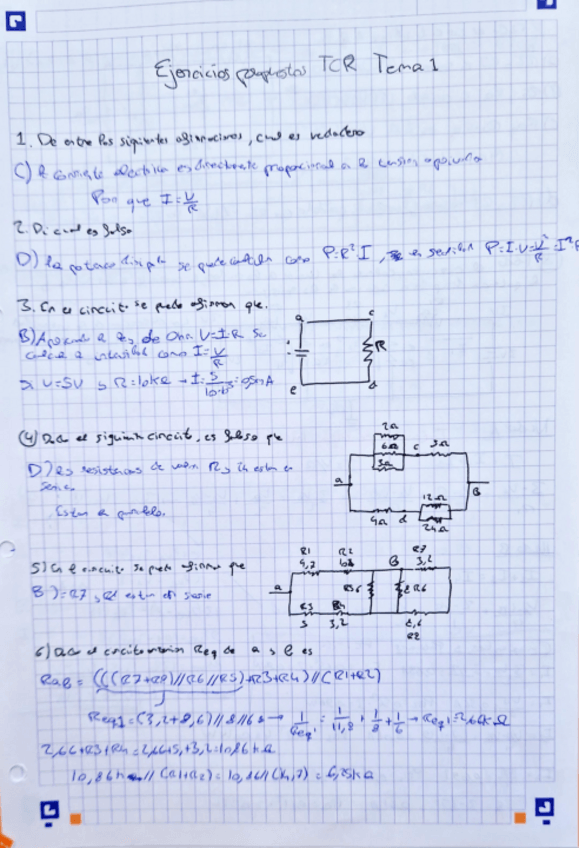 Ejercicios propuestos TCR Tema 1
1. De entre las siguientes afirmaciones, cual es verdadera
C) la corriente electrica es directamente proporcional a la tension aplicada
Por que I = V/R
2. Di cual es falso
D) la potencia disipada se puede calcular como P = R² I, en realidad P = I·V = V²/R = I²R
3. En el circuito se puede afirmar que.
B) Aplicando la ley de Ohm V = I·R se
calcula la intensidad como I = V/R
Si V = 5V y R = 10kΩ → I = 5/10·10³ = 0,5mA
a
c
R
e
d
(4) Dado el siguiente circuito, es falso que
D) las resistencias de valor
serie
Estan en paralelo.
2Ω
6Ω
c
3Ω
3Ω
a
B
4Ω
d
12Ω
24Ω
5) En el circuito se puede afirmar que
B) R7 y R8 estan en serie
R1
4,7
R2
B
R7
3,2
a
R5 6
8 R6
R3
5
R4
3,2
8,6
6) Dado el circuito anterior Req de a y B es
RaB = (((R7+R8)//R6//R5)+R3+R4)//(R1+R2)
Req1 = (3,2+8,6)//8//6 → 1/Req1 = 1/11,8 + 1/8 + 1/6 → Req1 = 2,66kΩ
2,66+R3+R4 = 2,66+5+3,2 = 10,86kΩ
10,86k // (R1+R2) = 10,86//(14,7) = 6,25kΩ